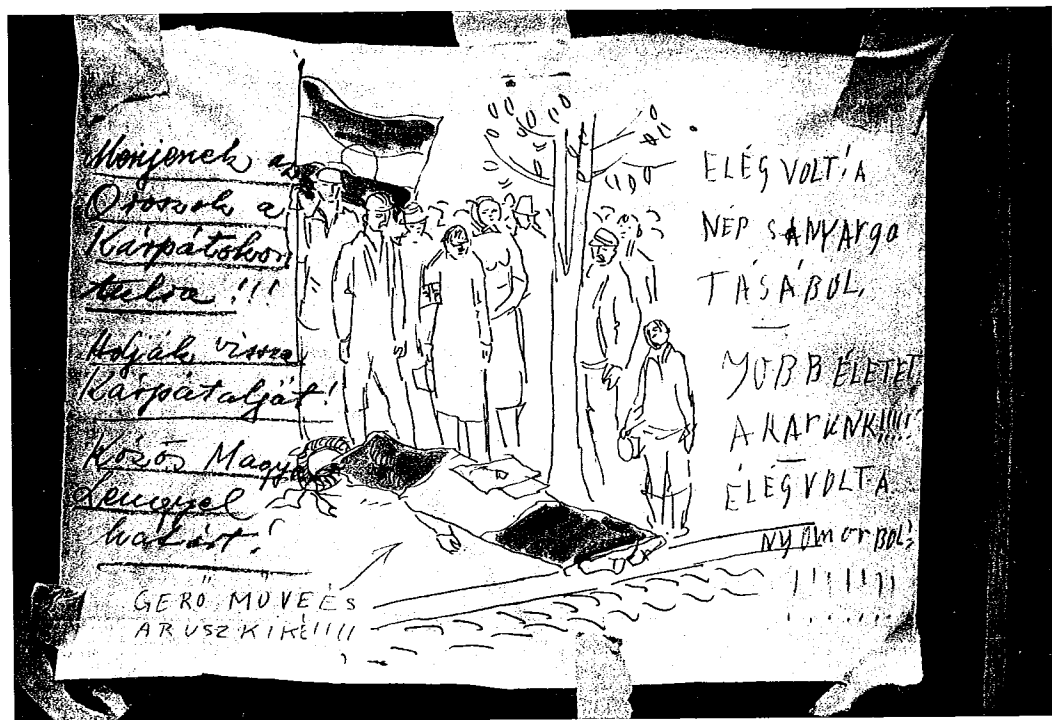 Menjenek az
Oroszok a
Kárpátokon
tulra!!!
Adják vissza
Kárpátalját!
Közös Magy
Lengyel
határt!
GERŐ MŰVE ÉS
A RUSZKIKÉ!!!!!
ELÉG VOLT! A
NÉP SANYARGA
TÁSÁBÓL,
JOBB ÉLETET,
AKARUNK!!!!!
ÉLÉG VOLT A
NYOMORBOL!
!!!!!!!
!!!!!!